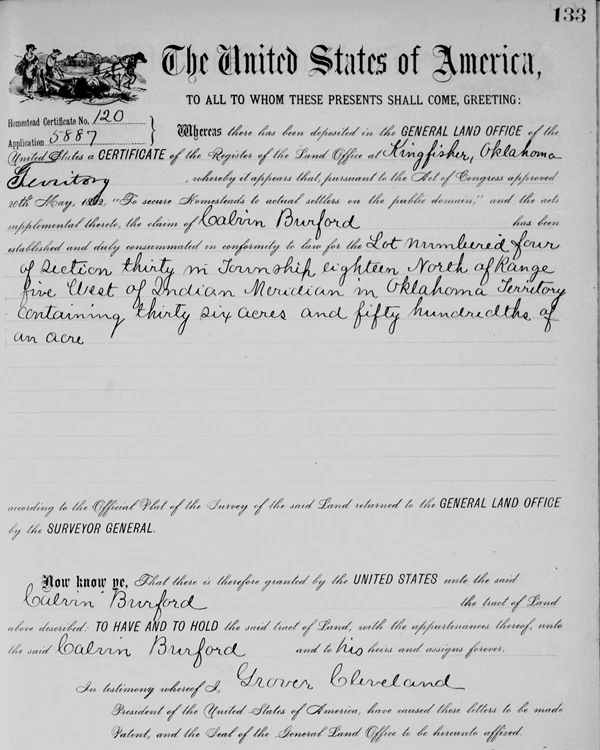 133
The United States of America,
TO ALL TO WHOM THESE PRESENTS SHALL COME, GREETING:
Homestead Certificate No. 120
Application 5887
Whereas there has been deposited in the GENERAL LAND OFFICE of the
United States a CERTIFICATE of the Register of the Land Office at Kingfisher, Oklahoma
Territory, whereby it appears that, pursuant to the Act of Congress approved
20th May, 1862, "To secure Homesteads to actual settlers on the public domain," and the acts
supplemental thereto, the claim of Calvin Burford has been
established and duly consummated in conformity to law for the Lot numbered four
of Section thirty in Township eighteen North of Range
five West of Indian Meridian in Oklahoma Territory
containing thirty six acres and fifty hundredths of
an acre
according to the Official Plat of the Survey of the said Land returned to the GENERAL LAND OFFICE
by the SURVEYOR GENERAL.
Now know ye, That there is therefore granted by the UNITED STATES unto the said
Calvin Burford the tract of Land
above described: TO HAVE AND TO HOLD the said tract of Land, with the appurtenances thereof, unto
the said Calvin Burford and to his heirs and assigns forever.
In testimony whereof I, Grover Cleveland
President of the United States of America, have caused these letters to be made
Patent, and the Seal of the General Land Office to be hereunto affixed.